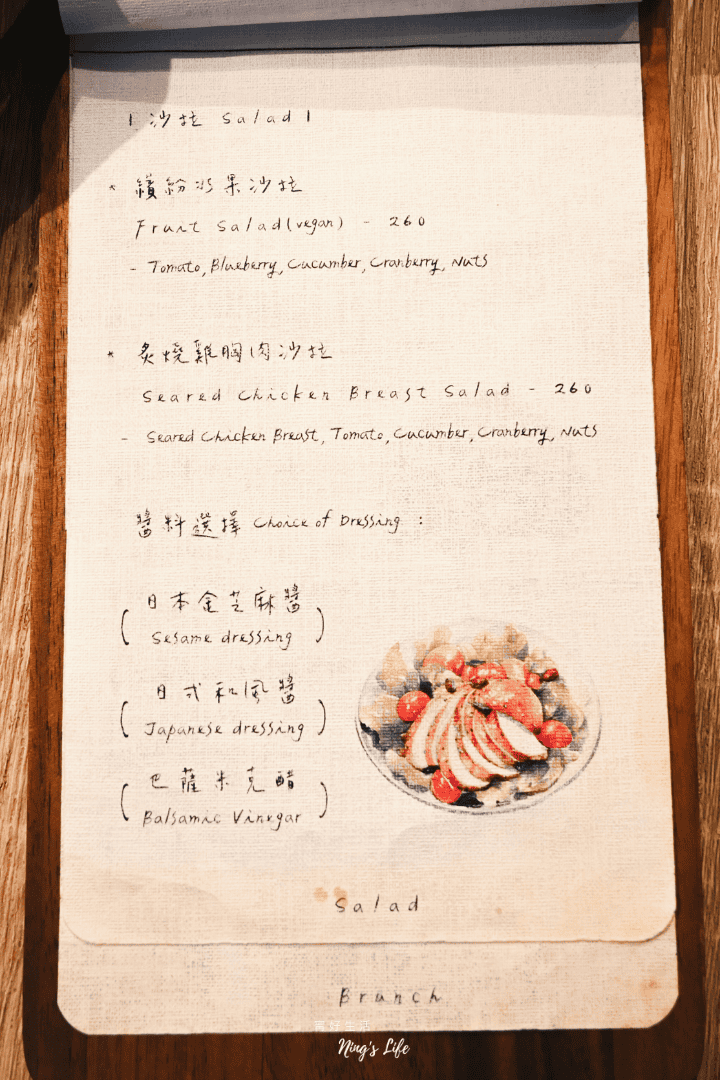 | 沙拉 Salad |
* 繽紛水果沙拉
Fruit Salad(vegan) - 260
- Tomato, Blueberry, Cucumber, Cranberry, Nuts
* 炙燒雞胸肉沙拉
Seared Chicken Breast Salad - 260
- Seared Chicken Breast, Tomato, Cucumber, Cranberry, Nuts
醬料選擇 Choice of Dressing :
日本金芝麻醬
Sesame dressing
日式和風醬
Japanese dressing
巴薩米克醋
Balsamic Vinegar
Salad
Brunch
Ning's Life